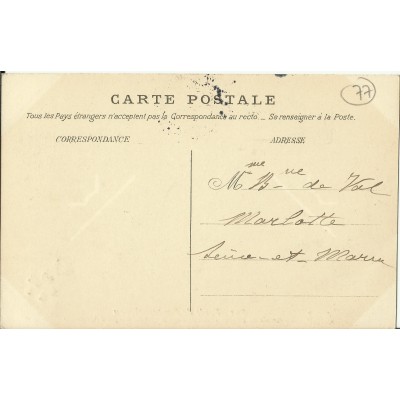 77
CARTE POSTALE
Tous les Pays étrangers n'acceptent pas la Correspondance au recto. _ Se renseigner à la Poste.
CORRESPONDANCE
ADRESSE
Mme Bne de Val
Marlotte
Seine-et-Marne